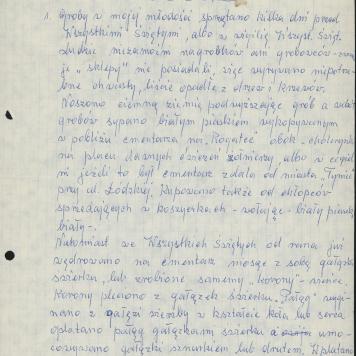 1. Groby w mojej młodości sprzątano kilka dni przed
Wszystkimi Świętymi, albo w wigilię Wszyst. Świąt.
Ludzie niezamożni nagrobków ani grobowców -
"sklepy" nie posiadali, więc wyrywano niepotrze-
bne chwasty, liście opadłe z drzew i krzewów.
Noszono ciemną ziemię podwyższając grób a wokół
grobów sypano białym piaskiem wykopywanym
w pobliżu cmentarza na "Rogatce" obok -
na placu dawnych ćwiczeń żołnierzy, albo w cegiel
ni jeżeli to był cmentarz z dala od miasta "Tyniec"
przy ul. Łódzkiej. Kupowano także od chłopców
sprzedających w koszyczkach - wołając - biały piasek
biały -.
Natomiast we Wszystkich Świętych od rana już
wędrowano na cmentarz niosąc z sobą gałązki
świerku, lub zrobione samemu "korony" - wieńce.
Korony pleciono z gałązek świerku. "Pałąg" nagi-
nano z gałęzi wierzby w kształcie koła lub serca
oplatano pałąg gałązkami świerku a umo-
cowywano gałązki sznurkiem lub drutem. Wplatano